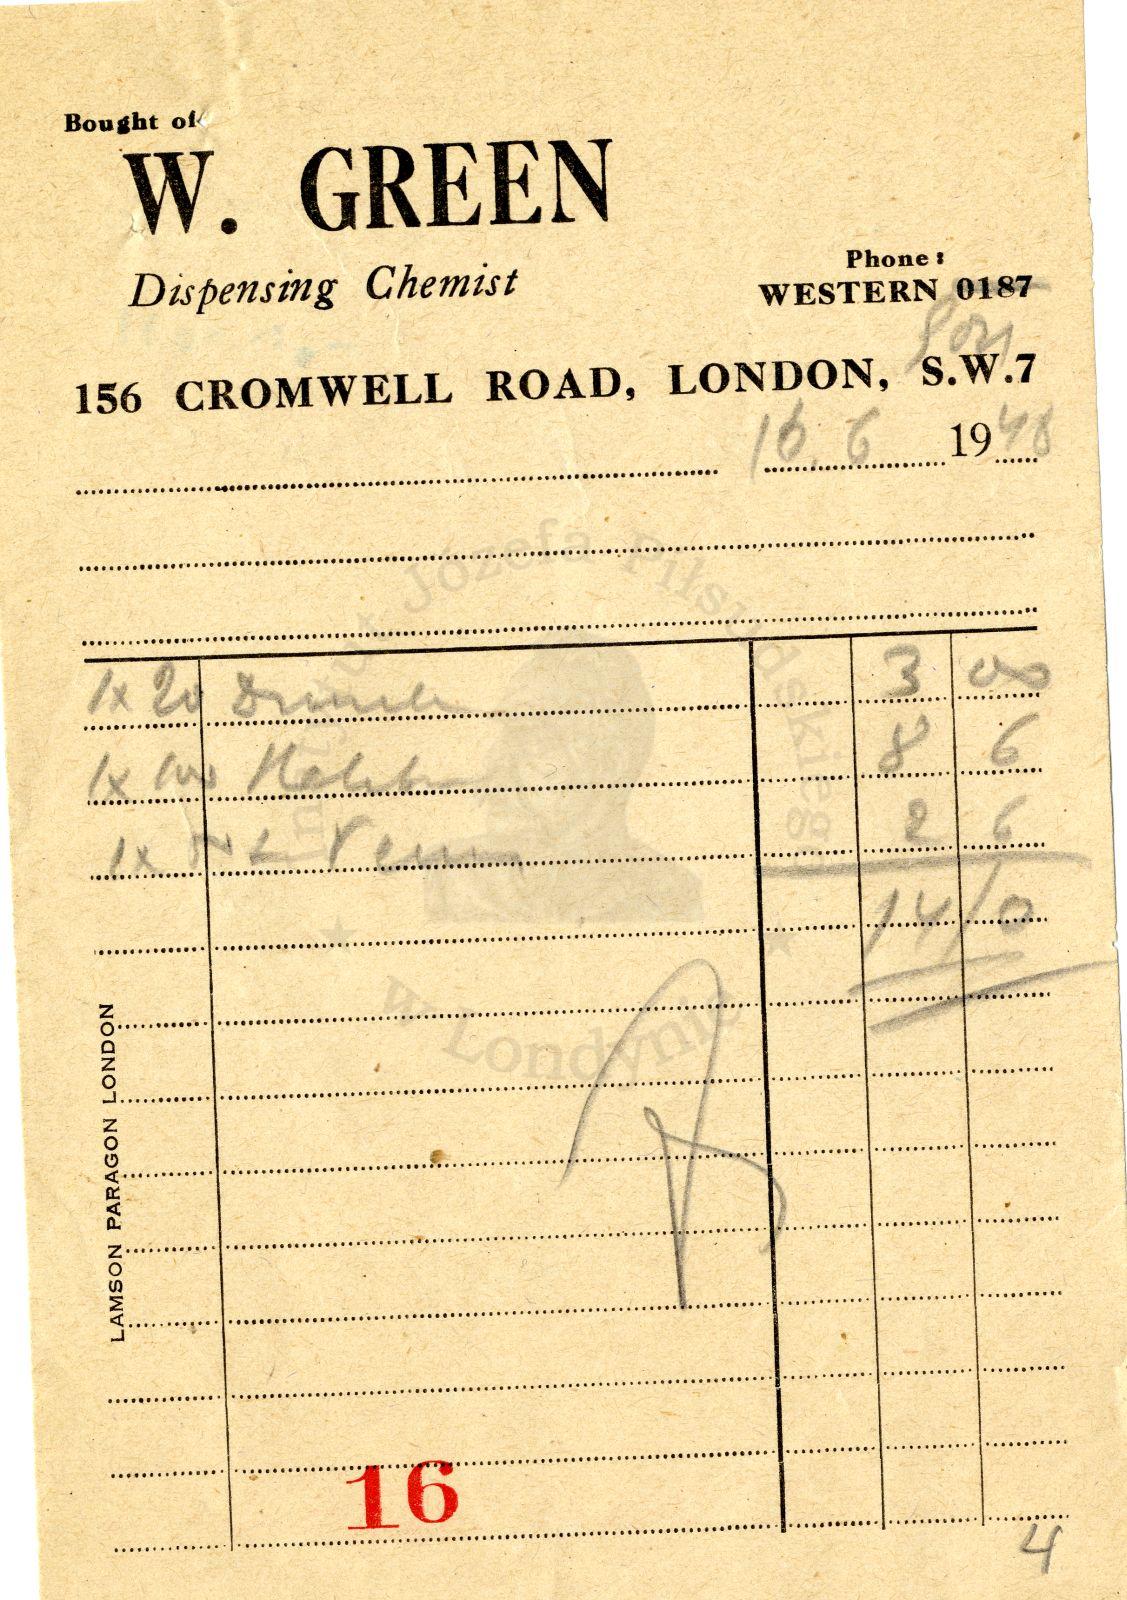 Bought of
W. GREEN
Dispensing Chemist
Phone:
WESTERN 0187
156 CROMWELL ROAD, LONDON, S.W.7
16. 6 1948
1x 20 3 00
1x 100 8 6
1x 2 6
14/0
Instytut Józefa Piłsudskiego
w Londynie
LAMSON PARAGON LONDON
16
4